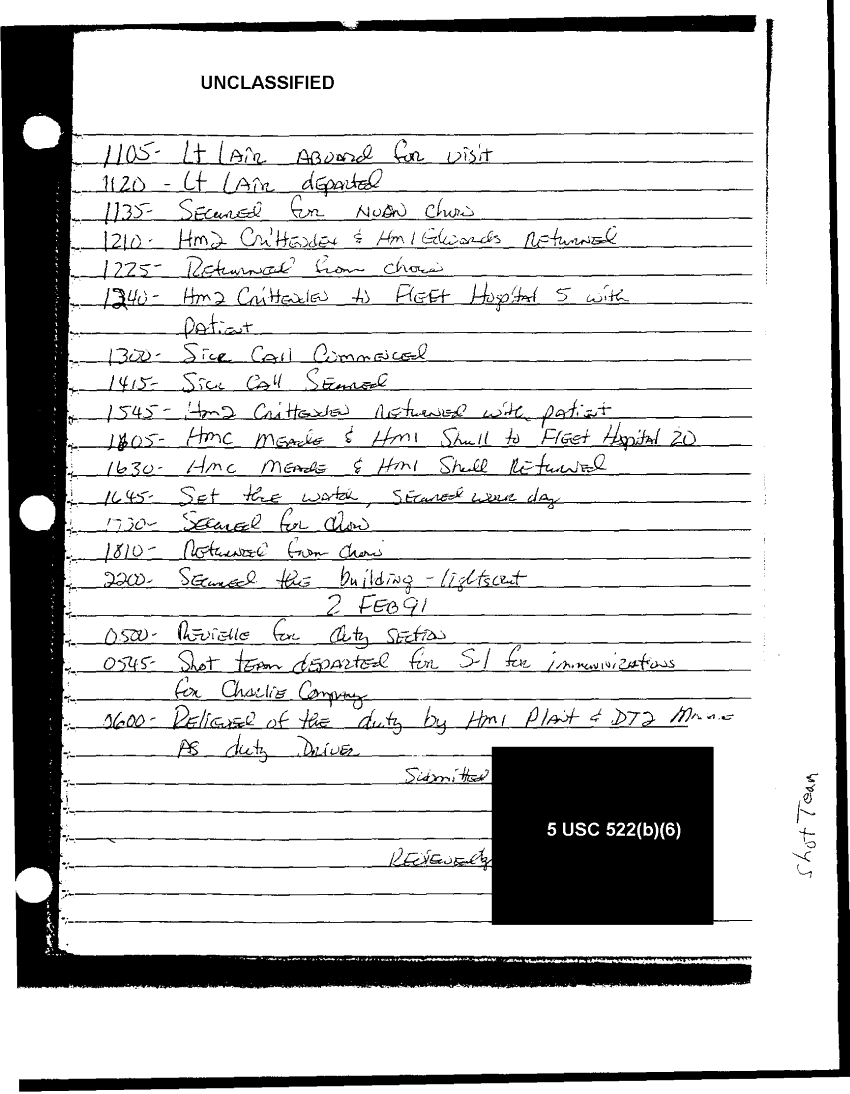 UNCLASSIFIED
1105- Lt LAir ABOARD for visit
1120 - Lt LAir departed
1135- Secured for NOON chow
1210- Hm2 Crittenden & Hm1 Edwards Returned
1225- Returned from chow
1240- Hm2 Crittenden to FLEET Hospital 5 with
patient
1300- Sick Call Commenced
1415- Sick Call Secured
1545- Hm2 Crittenden Returned with patient
1605- Hmc Meade & Hm1 Shull to FLEET Hospital 20
1630- Hmc Meade & Hm1 Shull Returned
1645- Set the watch, secured work day
1730- Secured for chow
1810- Returned from chow
2200- Secured the building - lights out
2 FEB 91
0500- Revielle for duty section
0545- Shot team departed for S-1 for immunizations
for Charlie Company
0600- Relieved of the duty by Hm1 Plant & DT2
AS duty Driver
Submitted
5 USC 522(b)(6)
Reviewed by
Shot Team